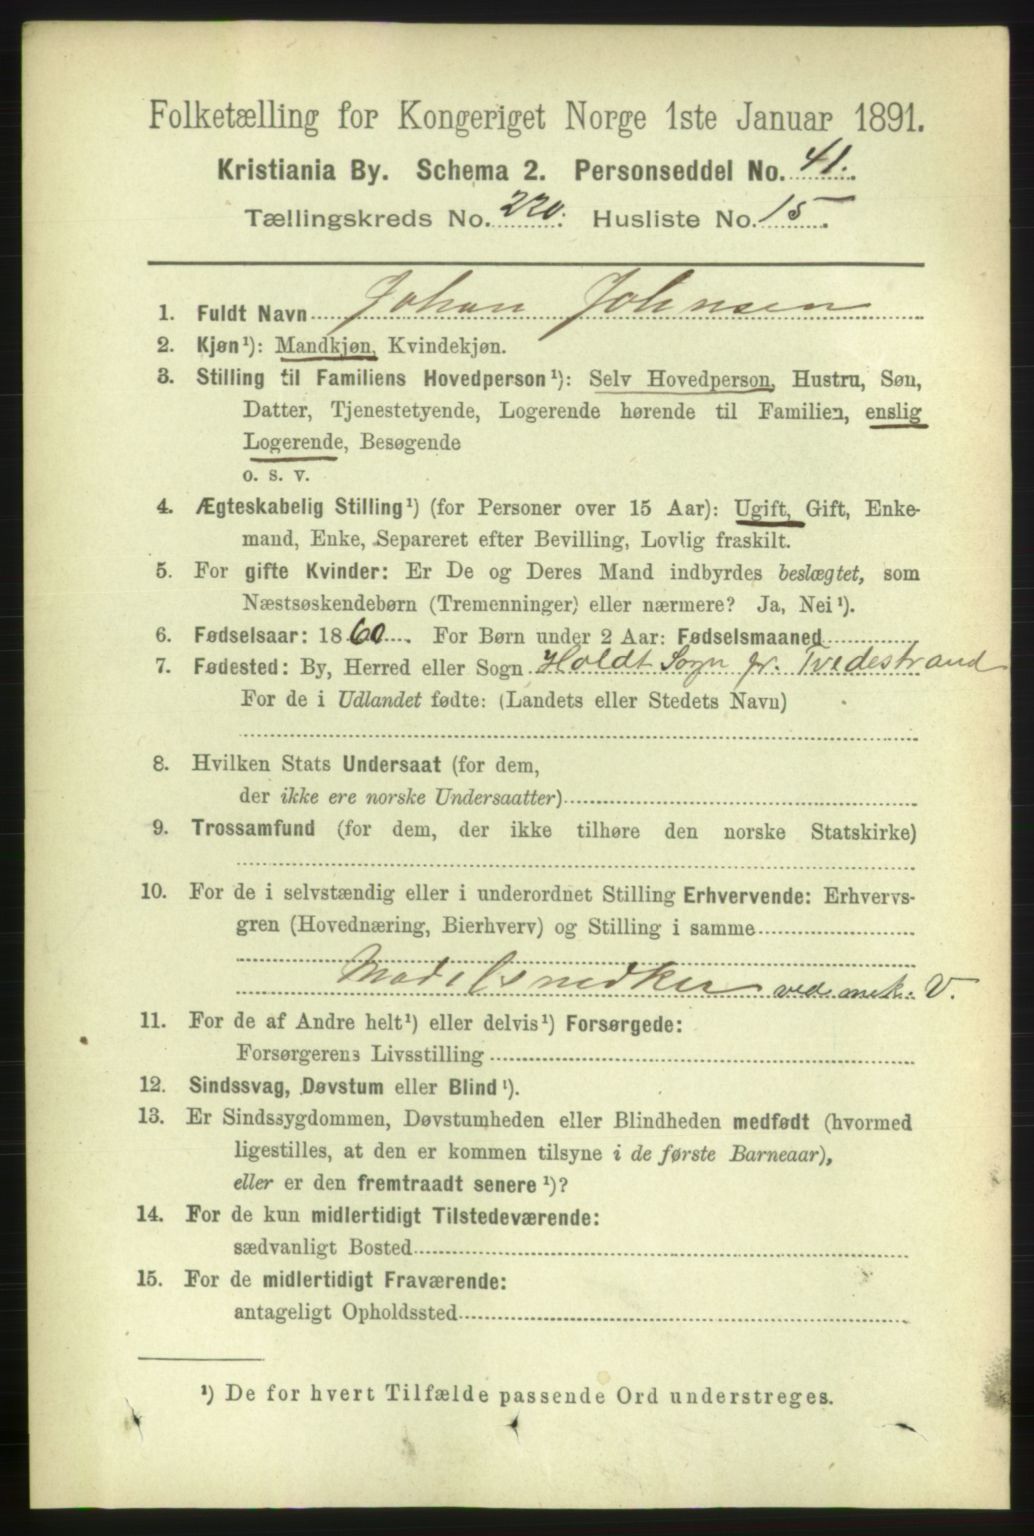 Folketælling for Kongeriget Norge 1ste Januar 1891.
Kristiania By. Schema 2. Personseddel No. 41.
Tællingskreds No. 220. Husliste No. 15.
1. Fuldt Navn Johan Johnsen
2. Kjøn¹): Mandkjøn, Kvindekjøn.
3. Stilling til Familiens Hovedperson¹): Selv Hovedperson, Hustru, Søn,
Datter, Tjenestetyende, Logerende hørende til Familien, enslig
Logerende, Besøgende
o. s. v.
4. Ægteskabelig Stilling¹) (for Personer over 15 Aar): Ugift, Gift, Enke-
mand, Enke, Separeret efter Bevilling, Lovlig fraskilt.
5. For gifte Kvinder: Er De og Deres Mand indbyrdes beslægtet, som
Næstsøskendebørn (Tremenninger) eller nærmere? Ja, Nei¹).
6. Fødselsaar: 1860. For Børn under 2 Aar: Fødselsmaaned
7. Fødested: By, Herred eller Sogn Holdt Sogn pr. Tvedestrand
For de i Udlandet fødte: (Landets eller Stedets Navn)
8. Hvilken Stats Undersaat (for dem,
der ikke ere norske Undersaatter)
9. Trossamfund (for dem, der ikke tilhøre den norske Statskirke)
10. For de i selvstændig eller i underordnet Stilling Erhvervende: Erhvervs-
gren (Hovednæring, Bierhverv) og Stilling i samme
Modelsnedker ved mek. V.
11. For de af Andre helt¹) eller delvis¹) Forsørgede:
Forsørgerens Livsstilling
12. Sindssvag, Døvstum eller Blind¹).
13. Er Sindssygdommen, Døvstumheden eller Blindheden medfødt (hvormed
ligestilles, at den er kommen tilsyne i de første Barneaar),
eller er den fremtraadt senere¹)?
14. For de kun midlertidigt Tilstedeværende:
sædvanligt Bosted
15. For de midlertidigt Fraværende:
antageligt Opholdssted
¹) De for hvert Tilfælde passende Ord understreges.